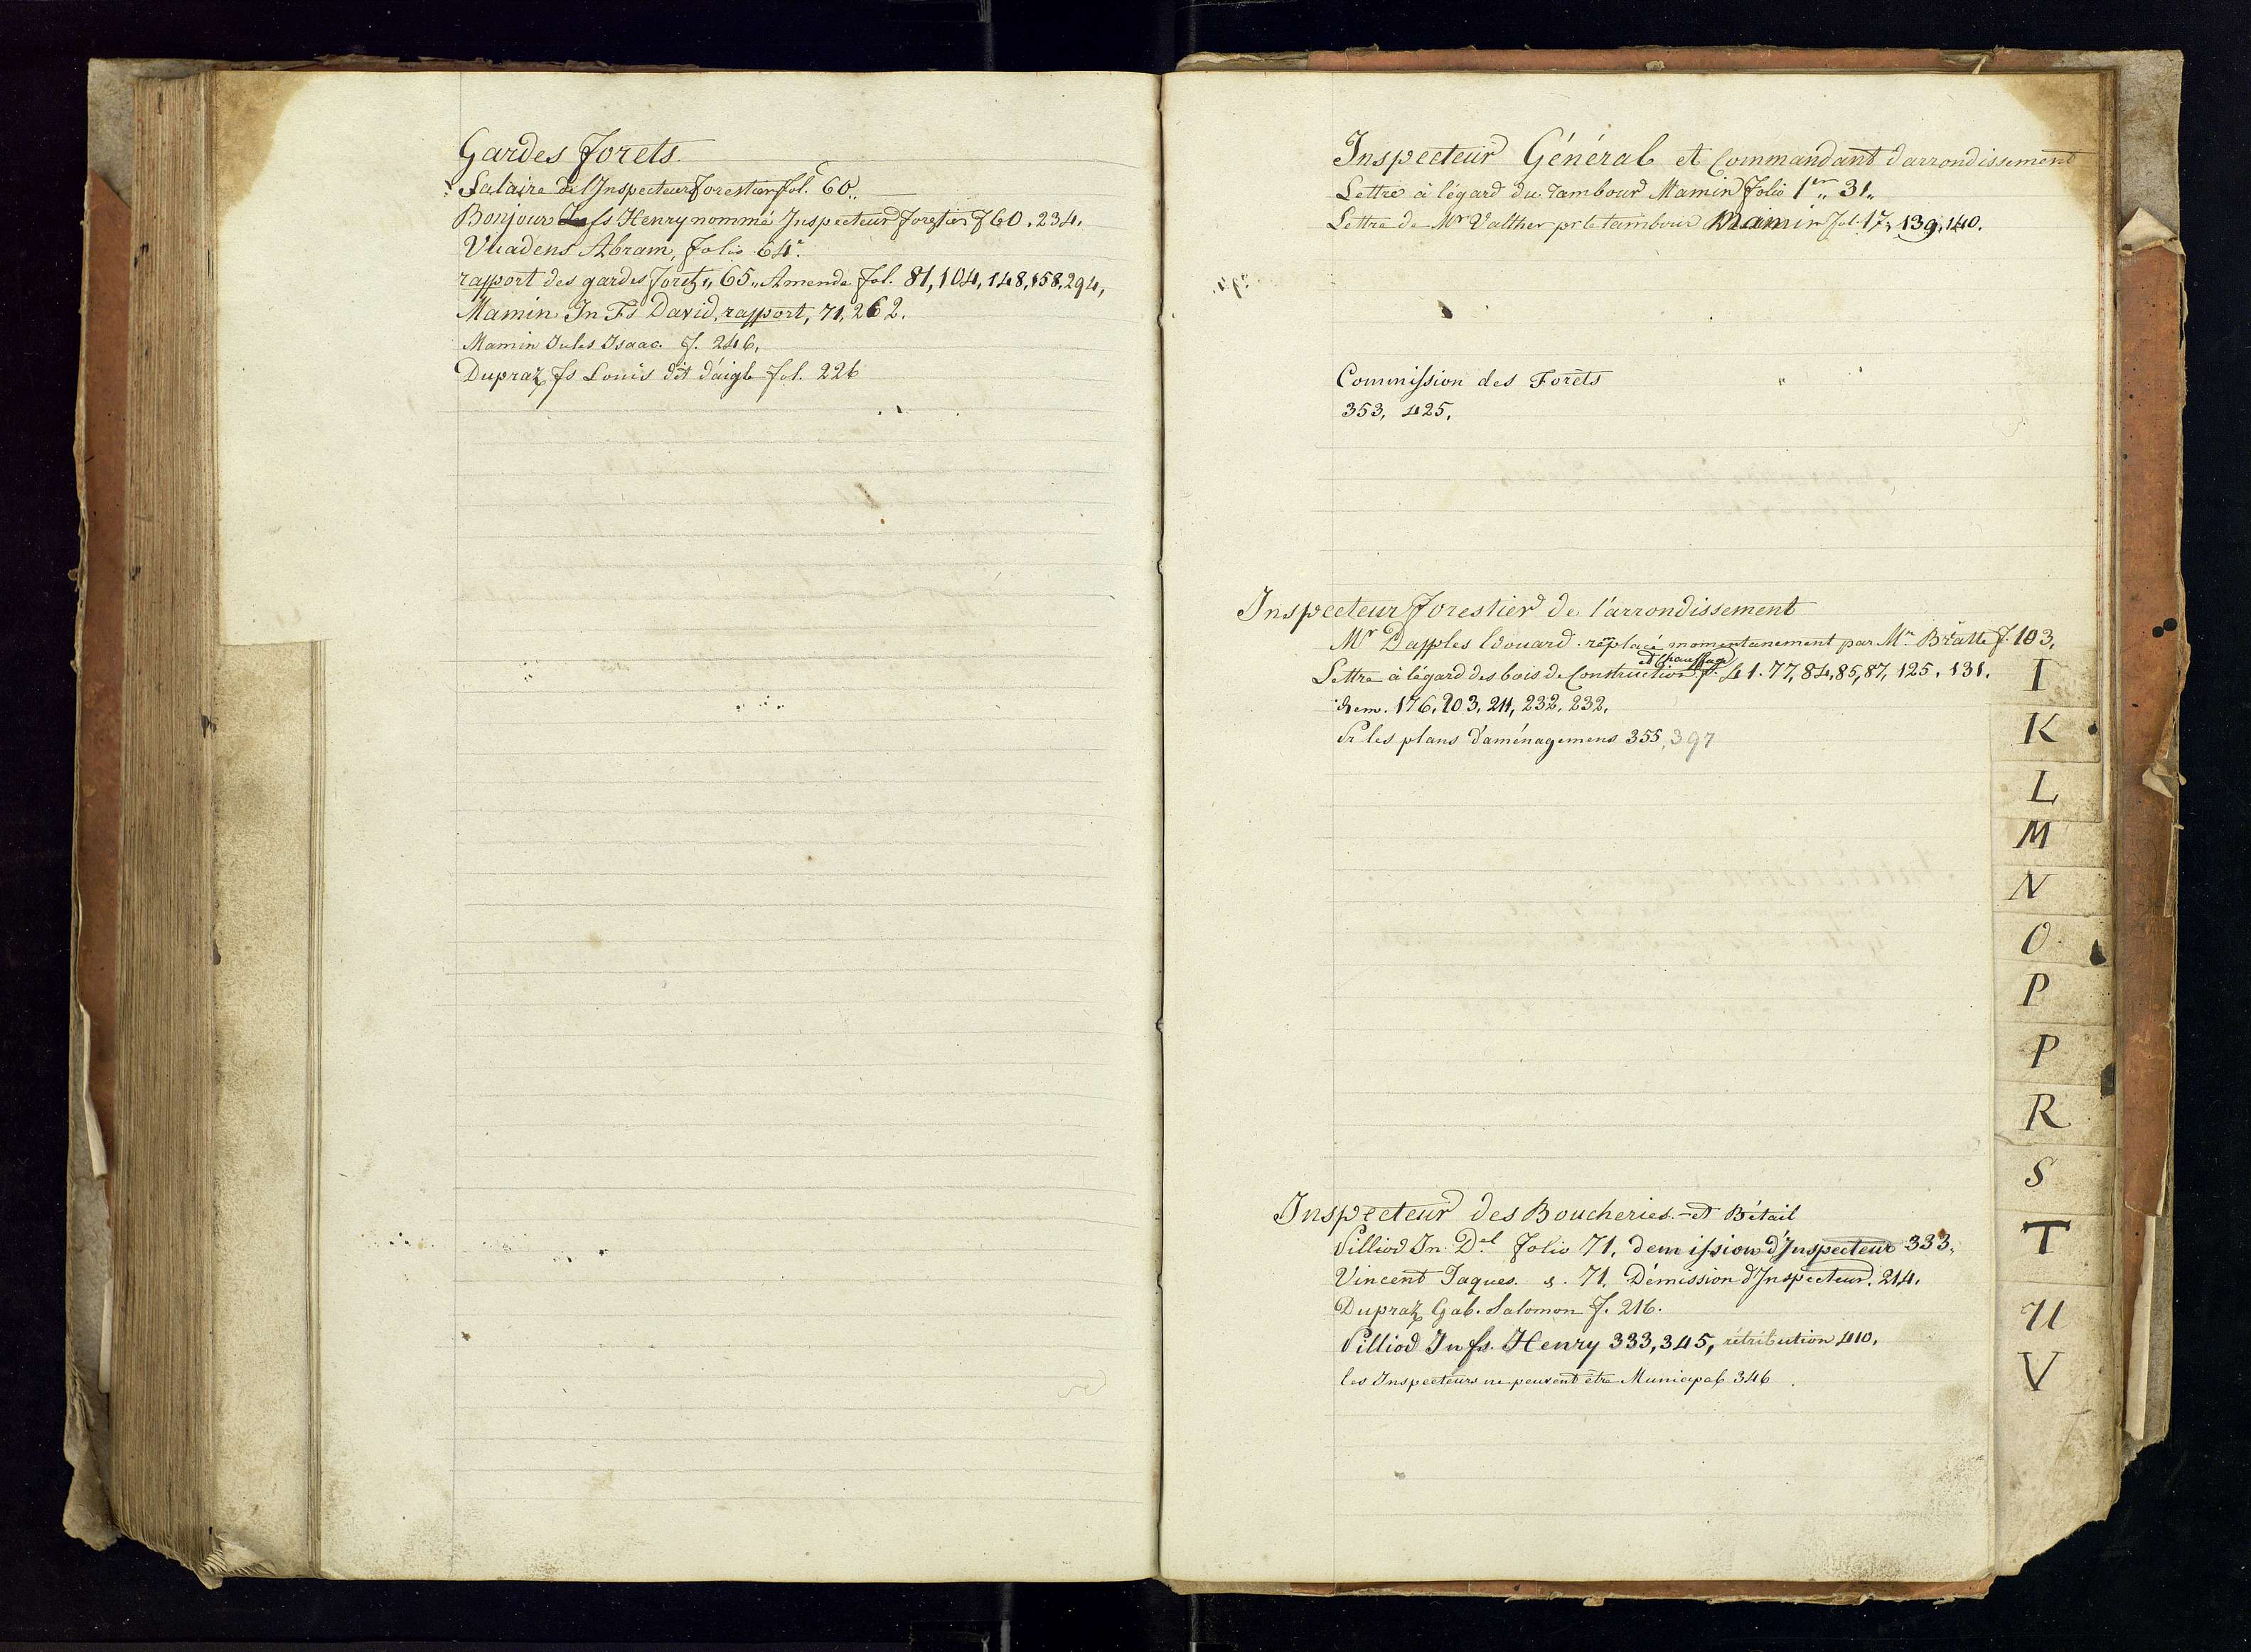 Gardes forets.
Salaire de l'Inspecteur forestier fol. 60.
Bonjour fs Henry nommé Inspecteur forestier f 60. 234.
Vuadens Abram, folio 64.
rapport des gardes forets, 65,, Amende fol. 81, 104, 148, 158, 294,
Mamin Jn Fs David, rapport, 71, 262.
Mamin Jules Isaac f. 246,
Dupraz fs Louis dit d'aigle fol. 226
Inspecteur Général et Commandant darrondissement
Lettre à légard du tambour Mamin folio 1er,, 31,,
Lettre de Mr Valther pr le tambour Mamin fol. 17, 139, 140.
Commission des Forêts
353, 425,
Inspecteur forestier de l'arrondissement
Mr Dapples Edouard. replacé momentanement par Mr Bratte f. 103,
et chauffage
Lettre à légard des bois de Construction f. 41. 77, 84, 85, 87, 125, 131,
Idem. 176, 203, 211, 232, 232,
Pr les plans d'aménagemens 355, 397
Inspecteur des Boucheries et Bétail
Pilliod Jn. Del folio 71, demission d'Inspecteur 333,
Vincent Jaques. 71. Démission d'Inspecteur. 214.
Dupraz Gab. Salomon f. 216.
Pilliod Jn fs. Henry 333, 345, rétribution 410,
les Inspecteurs ne peuvent être Municipal 346
I
K
L
M
N
O
P
P
R
S
T
U
V